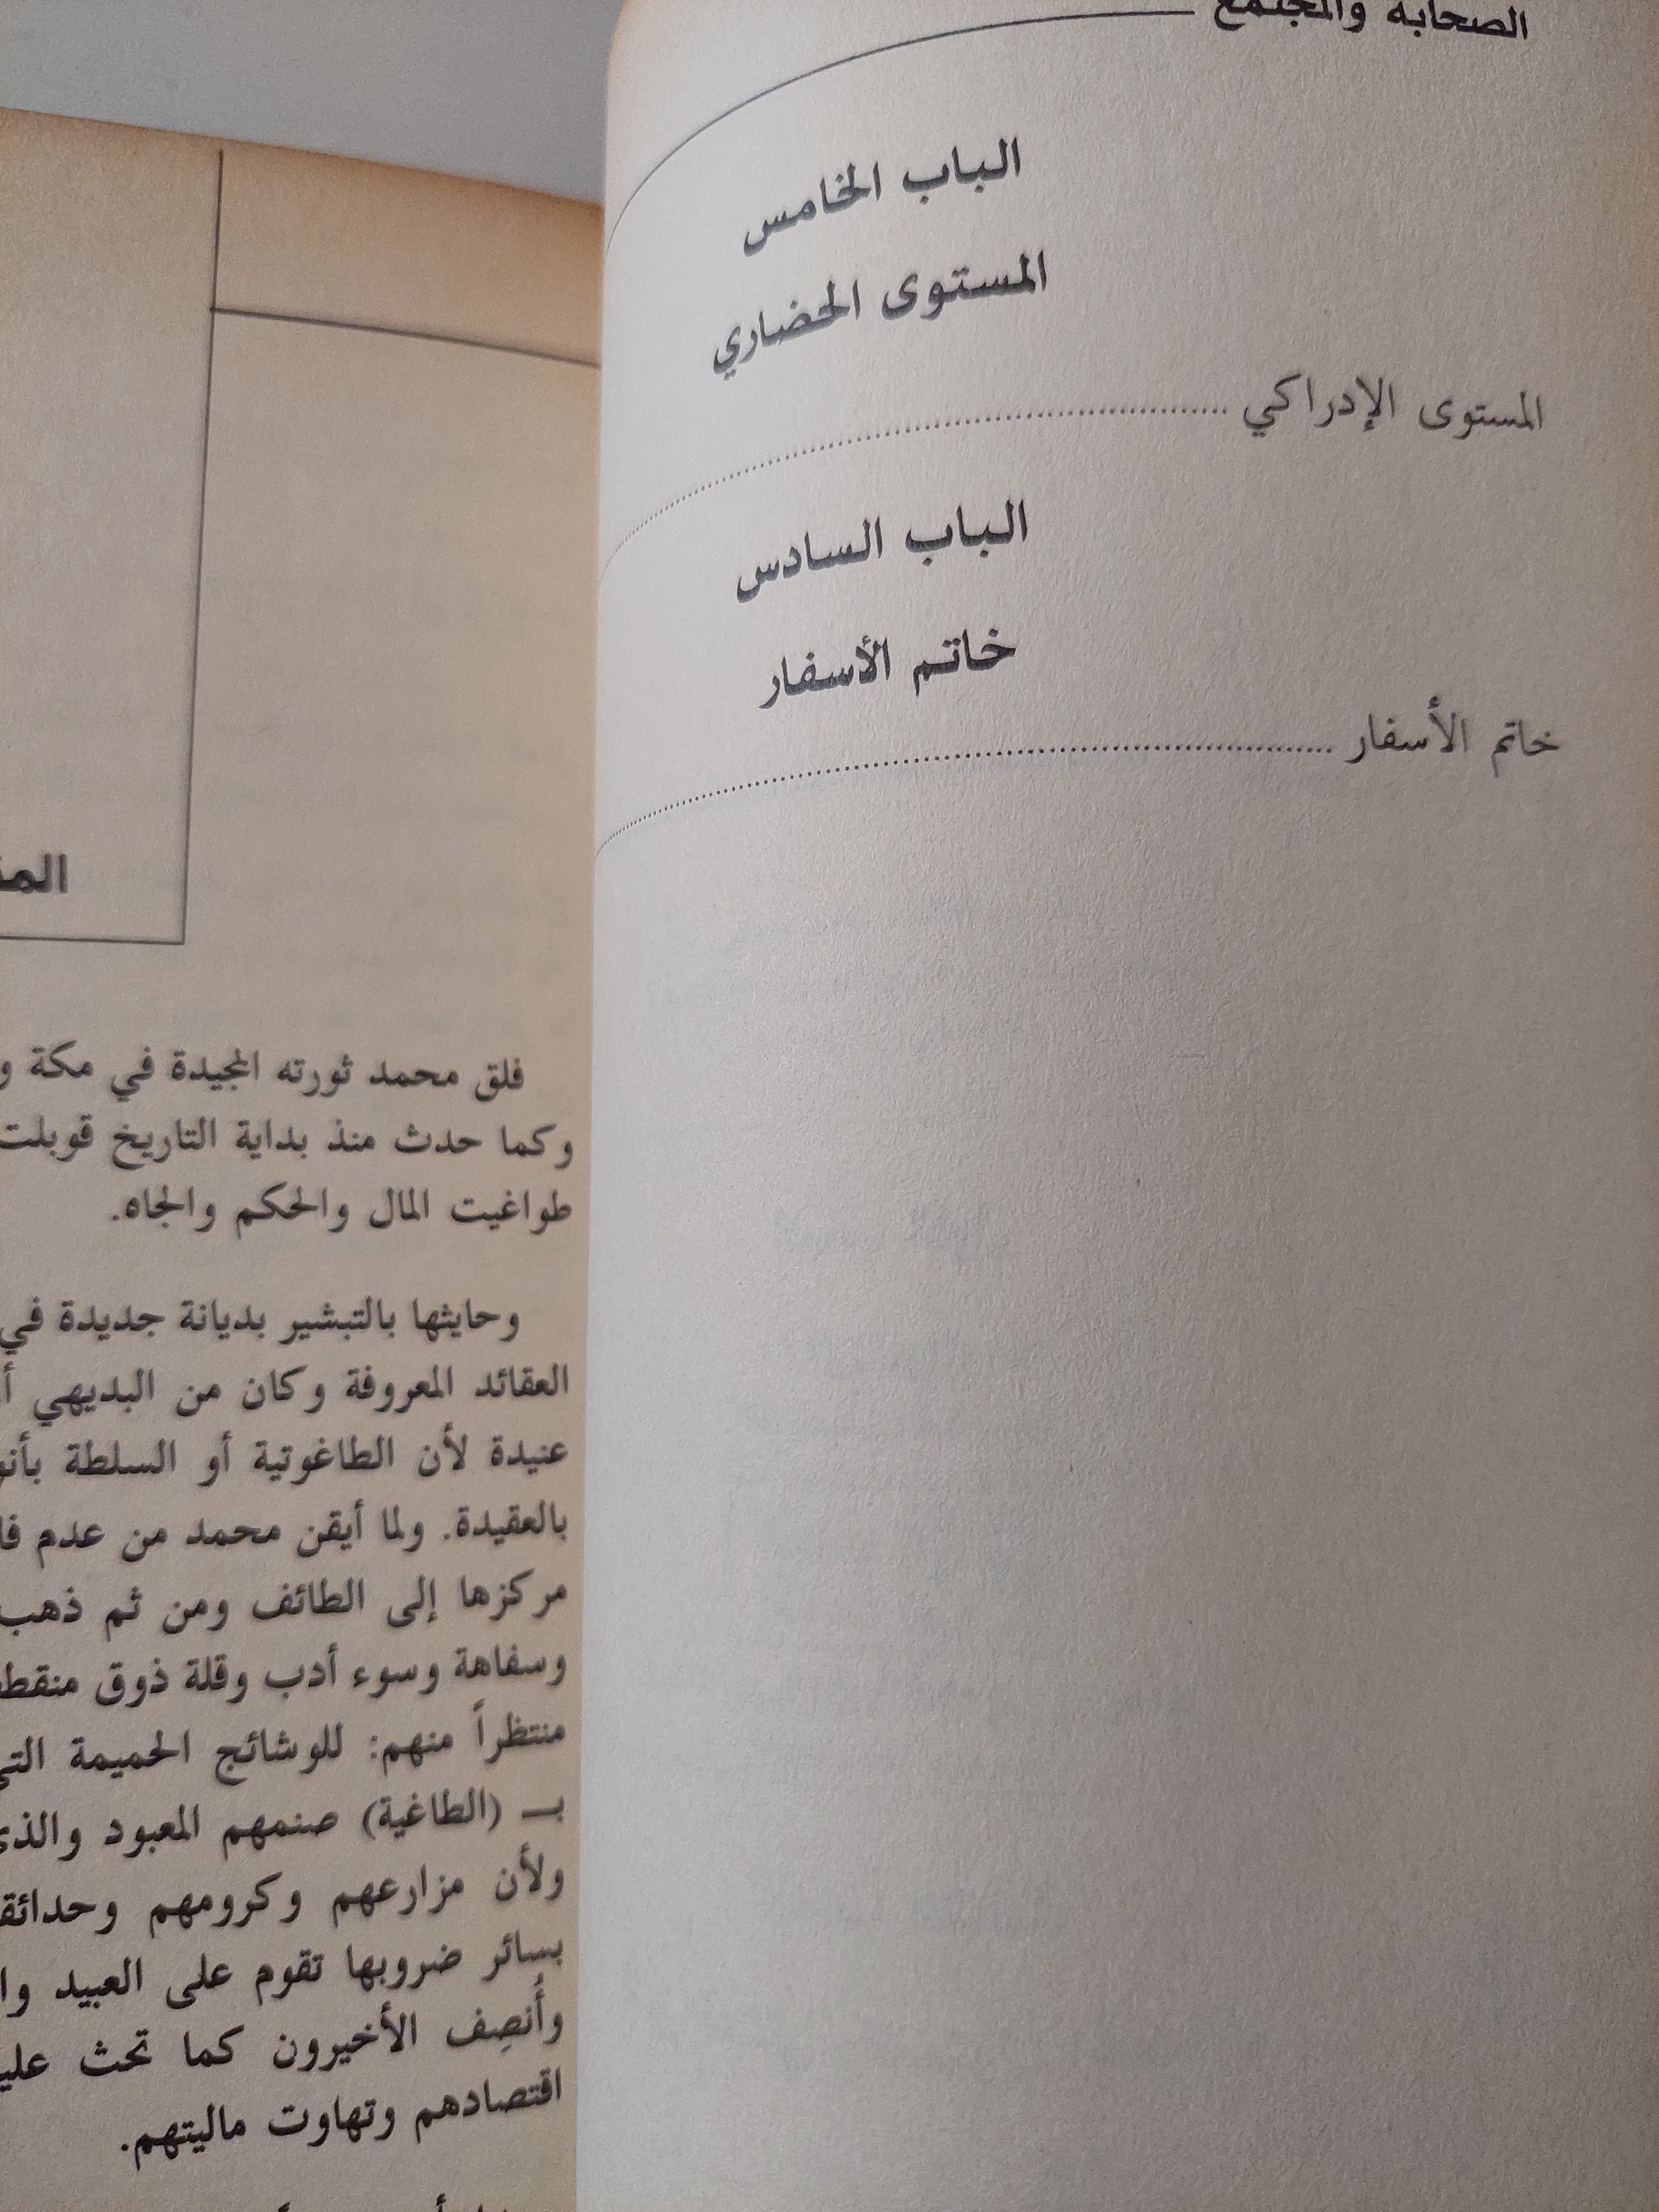 الصحابة والمجتمع
الباب الخامس
المستوى الحضاري
المستوى الإدراكي ........................
الباب السادس
خاتم الأسفار
خاتم الأسفار ........................
فلق محمد ثورته المجيدة في مكة و
وكما حدث منذ بداية التاريخ قوبلت
طواغيت المال والحكم والجاه.
وحايثها بالتبشير بديانة جديدة في
العقائد المعروفة وكان من البديهي
عنيدة لأن الطاغوتية أو السلطة
بالعقيدة. ولما أيقن محمد من عدم
مركزها إلى الطائف ومن ثم ذهب
وسفاهة وسوء أدب وقلة ذوق
منتظراً منهم: للوشائج الحميمة
بـ (الطاغية) صنمهم المعبود
ولأن مزارعهم وكرومهم
بسائر ضروبها تقوم على العبيد
وأُنصِف الأخيرون كما تحث
اقتصادهم وتهاوت ماليتهم.